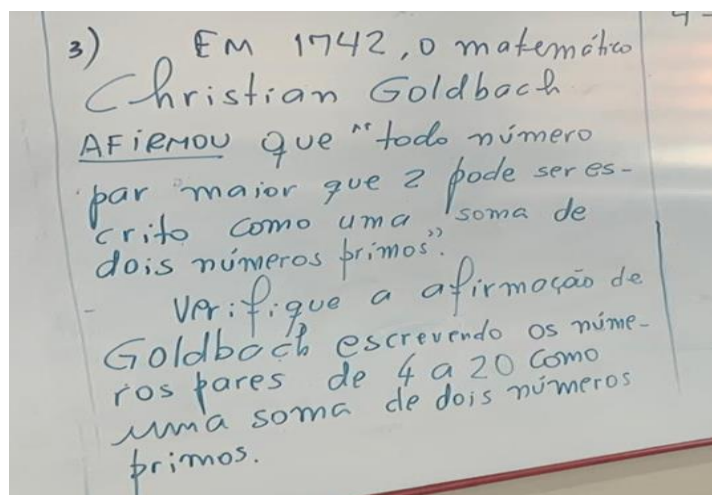 3) EM 1742, o matemático
Christian Goldbach
AFIRMOU que "todo número
par maior que 2 pode ser es-
crito como uma soma de
dois números primos".
Verifique a afirmação de
Goldbach escrevendo os núme-
ros pares de 4 a 20 como
uma soma de dois números
primos.